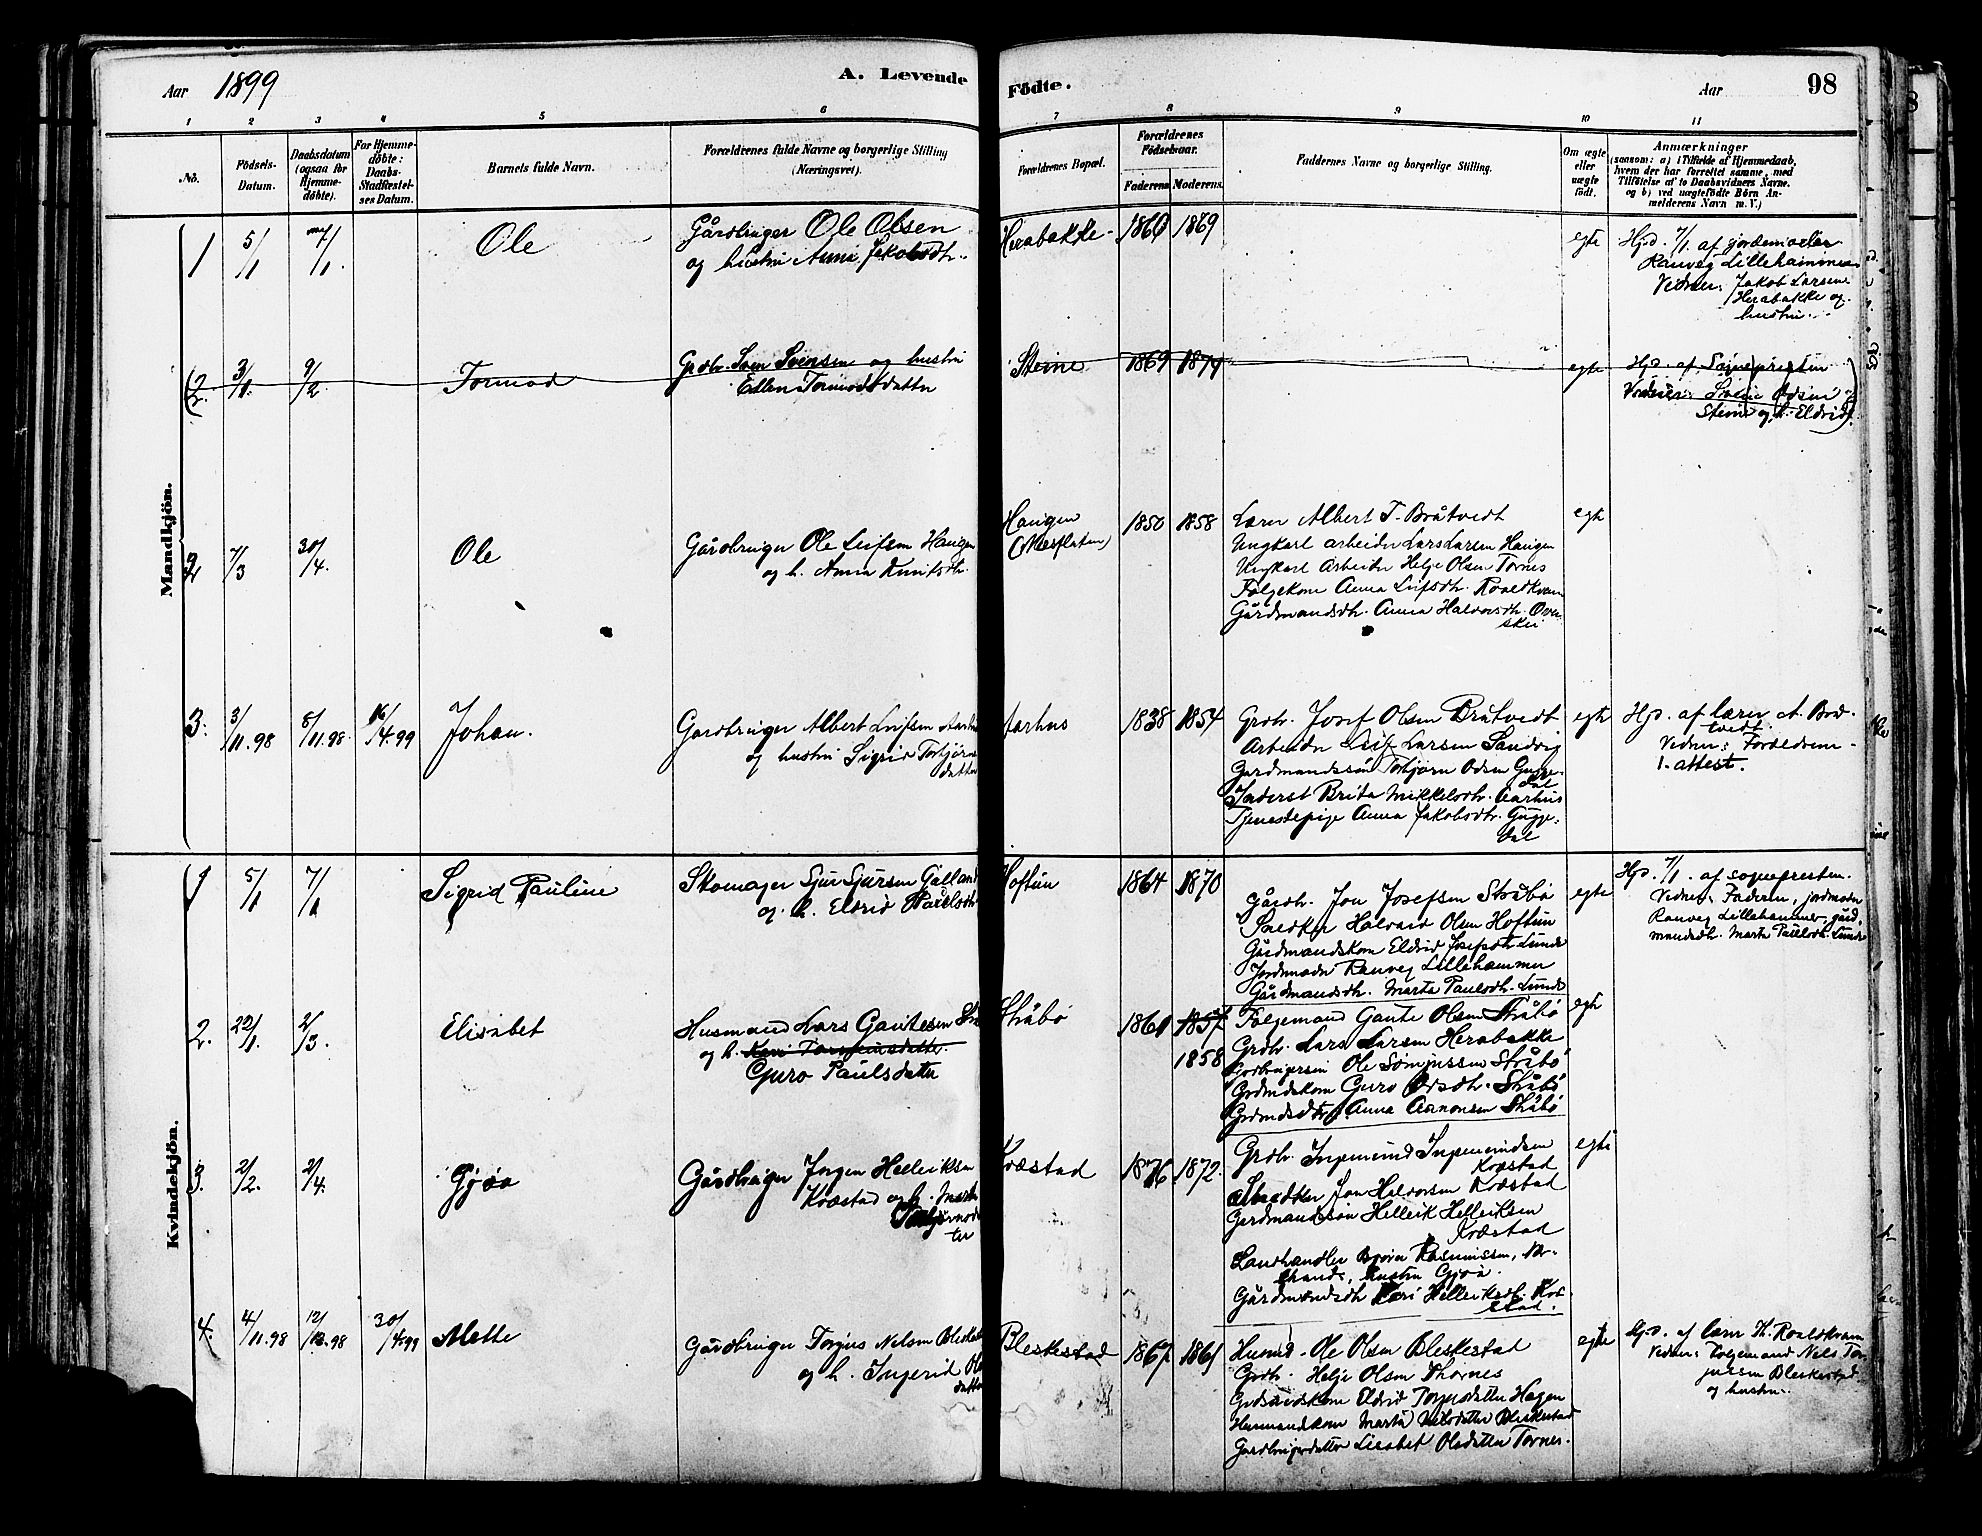 Aar 1899
A. Levende
Födte.
Aar
98
1 2 3 4 5 6 7 8 9 10 11
No.
Födsels-
Datum.
Daabsdatum
(ogsaa for
Hjemme-
döbte).
For Hjemme-
döbte:
Daabs-
Stadfæstel-
ses Datum.
Barnets fulde Navn.
Forældrenes fulde Navne og borgerlige Stilling
(Næringsvei).
Forældrenes Bopæl.
Forældrenes
Födselsaar.
Faderens. Moderens.
Faddernes Navne og borgerlige Stilling.
Om ægte
eller
uægte
födt.
Anmærkninger
(saasom: a) i Tilfælde af Hjemmedaab,
hvem der har forrettet samme, med
Tilföielse af to Daabsvidners Navne,
og b) ved uægtefödte Börn An-
melderens Navn m. V.)
Mandkjön.
1
5/1
7/1.
Ole
Gårdbruger Ole Olsen
og hustru Anna Jakobsdtr.
Herabakke
1860 1869
egte
Hjd. 7/1. af jordemoder
Ranveg Lillehammer
Vidner: Jakob Larsen
Herabakke og
hustru.
2.
3/1.
9/2.
Tormod
Grdbr. Svein Sveinsen og hustru
Ellen Tormodsdatter
Steine
1869 1874
egte
Hjd. af Sognepresten
Vidner: Svein Odsen
Steine og h. Eldrid.
2
7/3
30/4.
Ole
Gårdbruger Ole Leifsen Haugen
og h. Anna Knutsdtr.
Haugen
(Nesflaten)
1850 1858
Lærer Albert T. Bråtvedt
Ungkarl arbeider Lars Larsen Haugen
Ungkarl Arbeider Helje Olsen Tornes
Følgekone Anna Leifsdtr. Roaldkvam
Gårdmandsdtr. Anna Halvorsdtr. Øver-
skei
egte
3.
3/11.98
8/11.98.
16/4.99
Johan.
Gardbruger Albert Leifsen Aarhus
og hustru Sigrid Torbjørns
datter
Aarhus
1838 1854
Grdbr. Josef Olsen Bråtvedt
Arbeider Leif Larsen Sandvig
Gardmandssön Torbjørn Odsen Gugge-
dal
Inderst Brita Mikkelsdtr. Aarhus
Tjenestepige Anna Jakobsdtr. Gugge-
dal
egte
Hjd. af lærer A. Bråt-
vedt.
Vidner: Forældrene
1. attest.
Kvindekjön.
1
5/1
7/1
Sigrid Pauline
Skomager Sjur Sjursen Gåland
og h. Eldrid Paulsdtr
Hoftun
1864 1870
Gårdbr. Jon Josefsen Stråbø
Snedker Halvard Olsen Hoftun
Gårdmandskone Eldrid Josefsdtr. Lunde
Jordemoder Ranveg Lillehammer
Gårdmandsdtr. Marta Paulsdtr. Lunde
egte
Hjd. 7/1. af sognepresten.
Vidner: Faderen, jordmoder
Ranveg Lillehammer, gård-
mandsdtr. Marta Paulsdtr. Lunde
2.
22/1.
2/3.
Elisabet
Husmand Lars Gautesen Strå
og h. Kari Torsteinsdatter
Guro Paulsdatter
Stråbø
1860 1857
1858
Følgemand Gaute Olsen Stråbø
Grdbr. Lars Larsen Herabakke
Gardbrugersøn Ole Sønjussen Stråbø
Grdmdskone Guro Odsdtr. Stråbø
Grdmdsdtr. Anna Aanonsen Stråbø
egte
3.
2/2.
2/4.
Gjöa
Gårdbruger Jørgen Helleriksen
Kræstad og h. Marta
Torbjørnsdat
ter
Kvæstad
1876 1872.
Grdbr. Ingemund Ingemundsen
Kvæstad
Snedker Jon Halvorsen Kvæstad
Gardmandssön Hellerik Helleriksen
Kvæstad
Landhandler Bjørn Rasmussen,
hustru Gjöa.
Gårdmandsdtr. Kari Helleriksdtr. Kvæ-
stad.
egte
4.
4/11.98
12/12.98
30/4.99
Mette
Gårdbruger Torgius Nelsen Bleskestad
og h. Ingerid Ols
datter
Bleskestad
1867 1861
Husmd. Ole Olsen Bleskestad
Grdbr. Helje Olsen Thornes
Grdmandskone Eldrid Torgiusdatter Hagen
Husmandkone Marta Nilsdatter Bleskestad
Gardbrugerdatter Liesbet Olsdatter Tornes.
egte
Hjd. af lærer Th. Roaldkvam
Vidner: Følgemand Nels Tor-
jussen Bleskestad
og hustru.